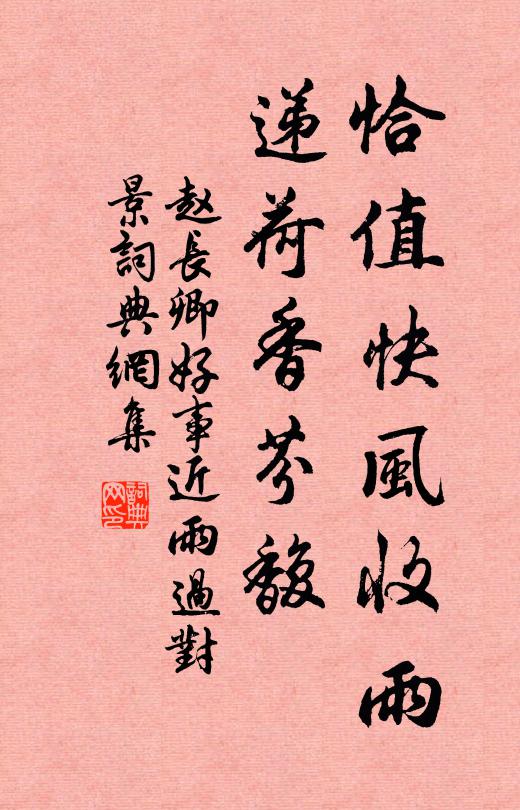 恰值快風收雨
递荷香芬馥
赵長卿好事近雨過對
景詞典網集
詞典
网印